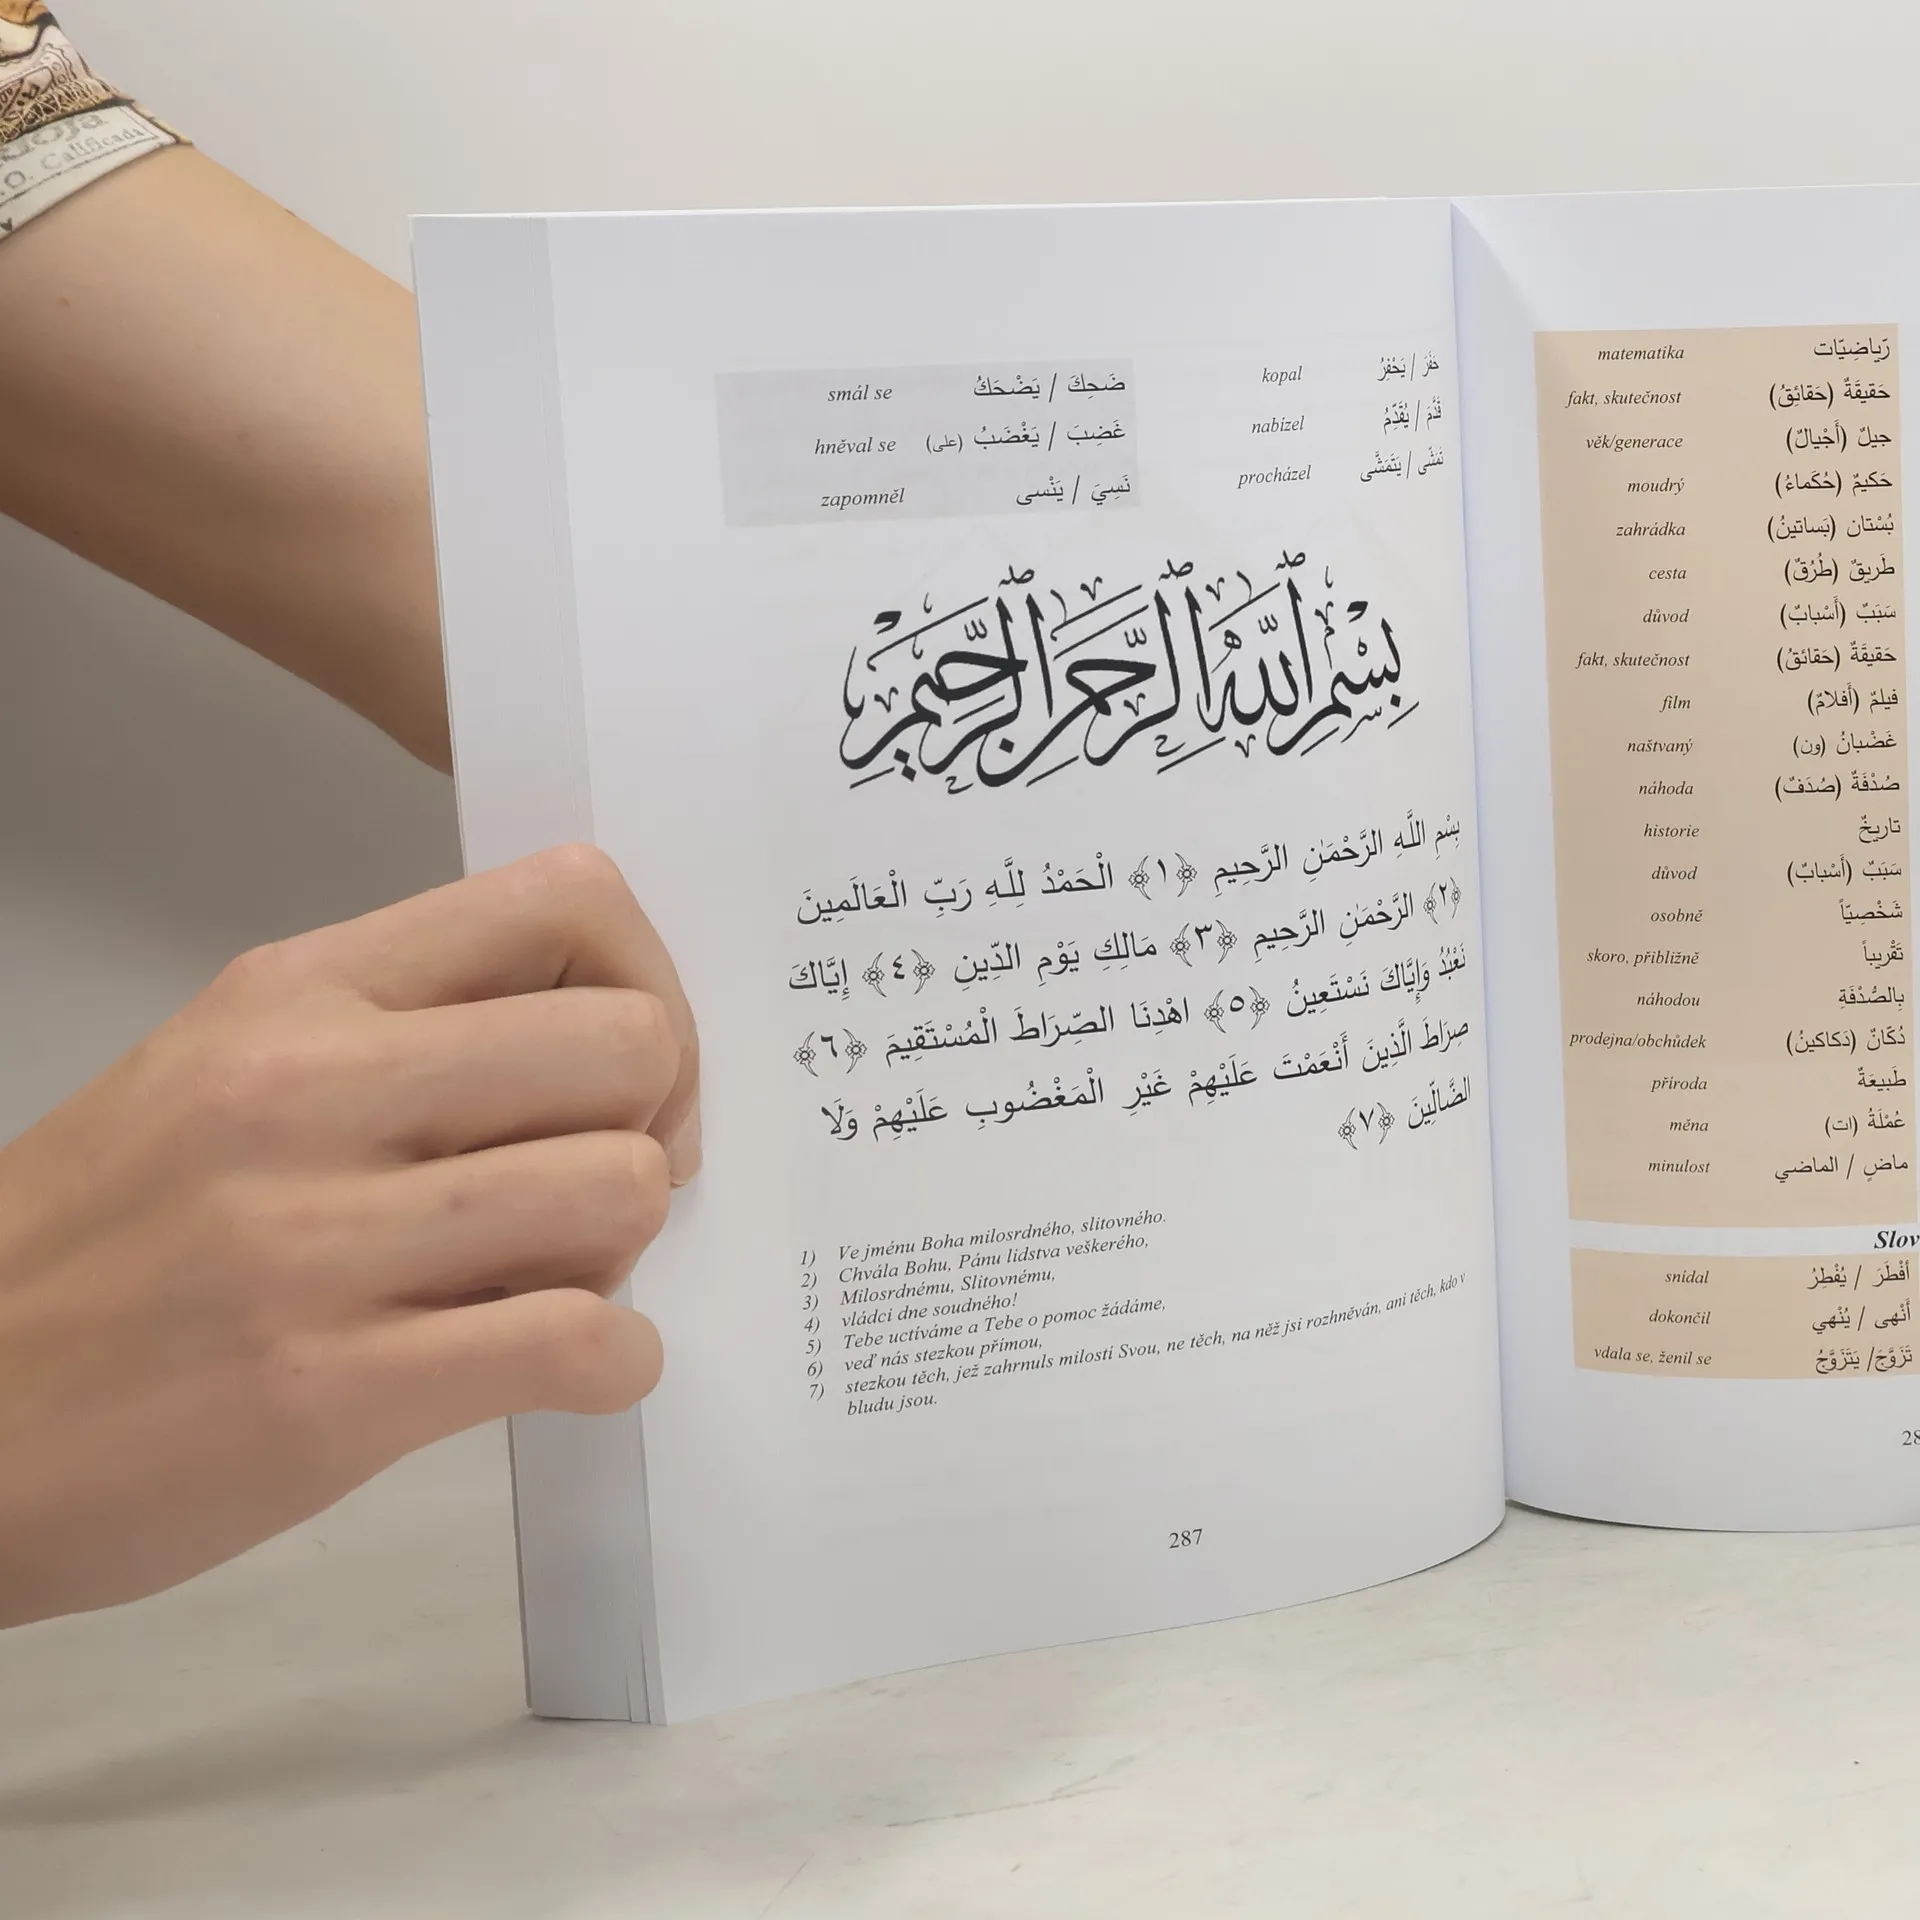 Calificada
smál se ضَحِكَ / يَضْحَكُ
hněval se غَضِبَ / يَغْضَبُ (على)
zapomněl نَسِيَ / يَنْسى
kopal حَفَرَ / يَحْفِرُ
nabízel قَدَّمَ / يُقَدِّمُ
procházel تَمَشّى / يَتَمَشَّى
بِسْمِ ٱللَّهِ ٱلرَّحْمَٰنِ ٱلرَّحِيمِ
بِسْمِ اللَّهِ الرَّحْمَٰنِ الرَّحِيمِ ﴿١﴾ الْحَمْدُ لِلَّهِ رَبِّ الْعَالَمِينَ
﴿٢﴾ الرَّحْمَٰنِ الرَّحِيمِ ﴿٣﴾ مَالِكِ يَوْمِ الدِّينِ ﴿٤﴾ إِيَّاكَ
نَعْبُدُ وَإِيَّاكَ نَسْتَعِينُ ﴿٥﴾ اهْدِنَا الصِّرَاطَ الْمُسْتَقِيمَ ﴿٦﴾
صِرَاطَ الَّذِينَ أَنْعَمْتَ عَلَيْهِمْ غَيْرِ الْمَغْضُوبِ عَلَيْهِمْ وَلَا
الضَّالِّينَ ﴿٧﴾
1) Ve jménu Boha milosrdného, slitovného.
2) Chvála Bohu, Pánu lidstva veškerého,
3) Milosrdnému, Slitovnému,
4) vládci dne soudného!
5) Tebe uctíváme a Tebe o pomoc žádáme,
6) veď nás stezkou přímou,
7) stezkou těch, jež zahrnuls milostí Svou, ne těch, na něž jsi rozhněván, ani těch, kdo v
bludu jsou.
287
matematika رِّياضِيّات
fakt, skutečnost حَقيقَةٌ (حَقائِقُ)
věk/generace جيلٌ (أَجْيالٌ)
moudrý حَكيمٌ (حُكَماءُ)
zahrádka بُسْتان (بَساتينُ)
cesta طَريقٌ (طُرُقٌ)
důvod سَبَبٌ (أَسْبابٌ)
fakt, skutečnost حَقيقَةٌ (حَقائِقُ)
film فيلمٌ (أَفلامٌ)
naštvaný غَضْبانُ (ون)
náhoda صُدْفَةٌ (صُدَفٌ)
historie تاريخٌ
důvod سَبَبٌ (أَسْبابٌ)
osobně شَخْصِيّاً
skoro, přibližně تَقْريباً
náhodou بِالصُّدْفَةِ
prodejna/obchůdek دُكّانٌ (دَكاكينُ)
příroda طَبيعَةٌ
měna عُمْلَةُ (ات)
minulost ماضٍ / الماضي
Slov
snídal أَفْطَرَ / يُفْطِرُ
dokončil أَنْهى / يُنْهي
vdala se, ženil se تَزَوَّجَ/ يَتَزَوَّجُ
28